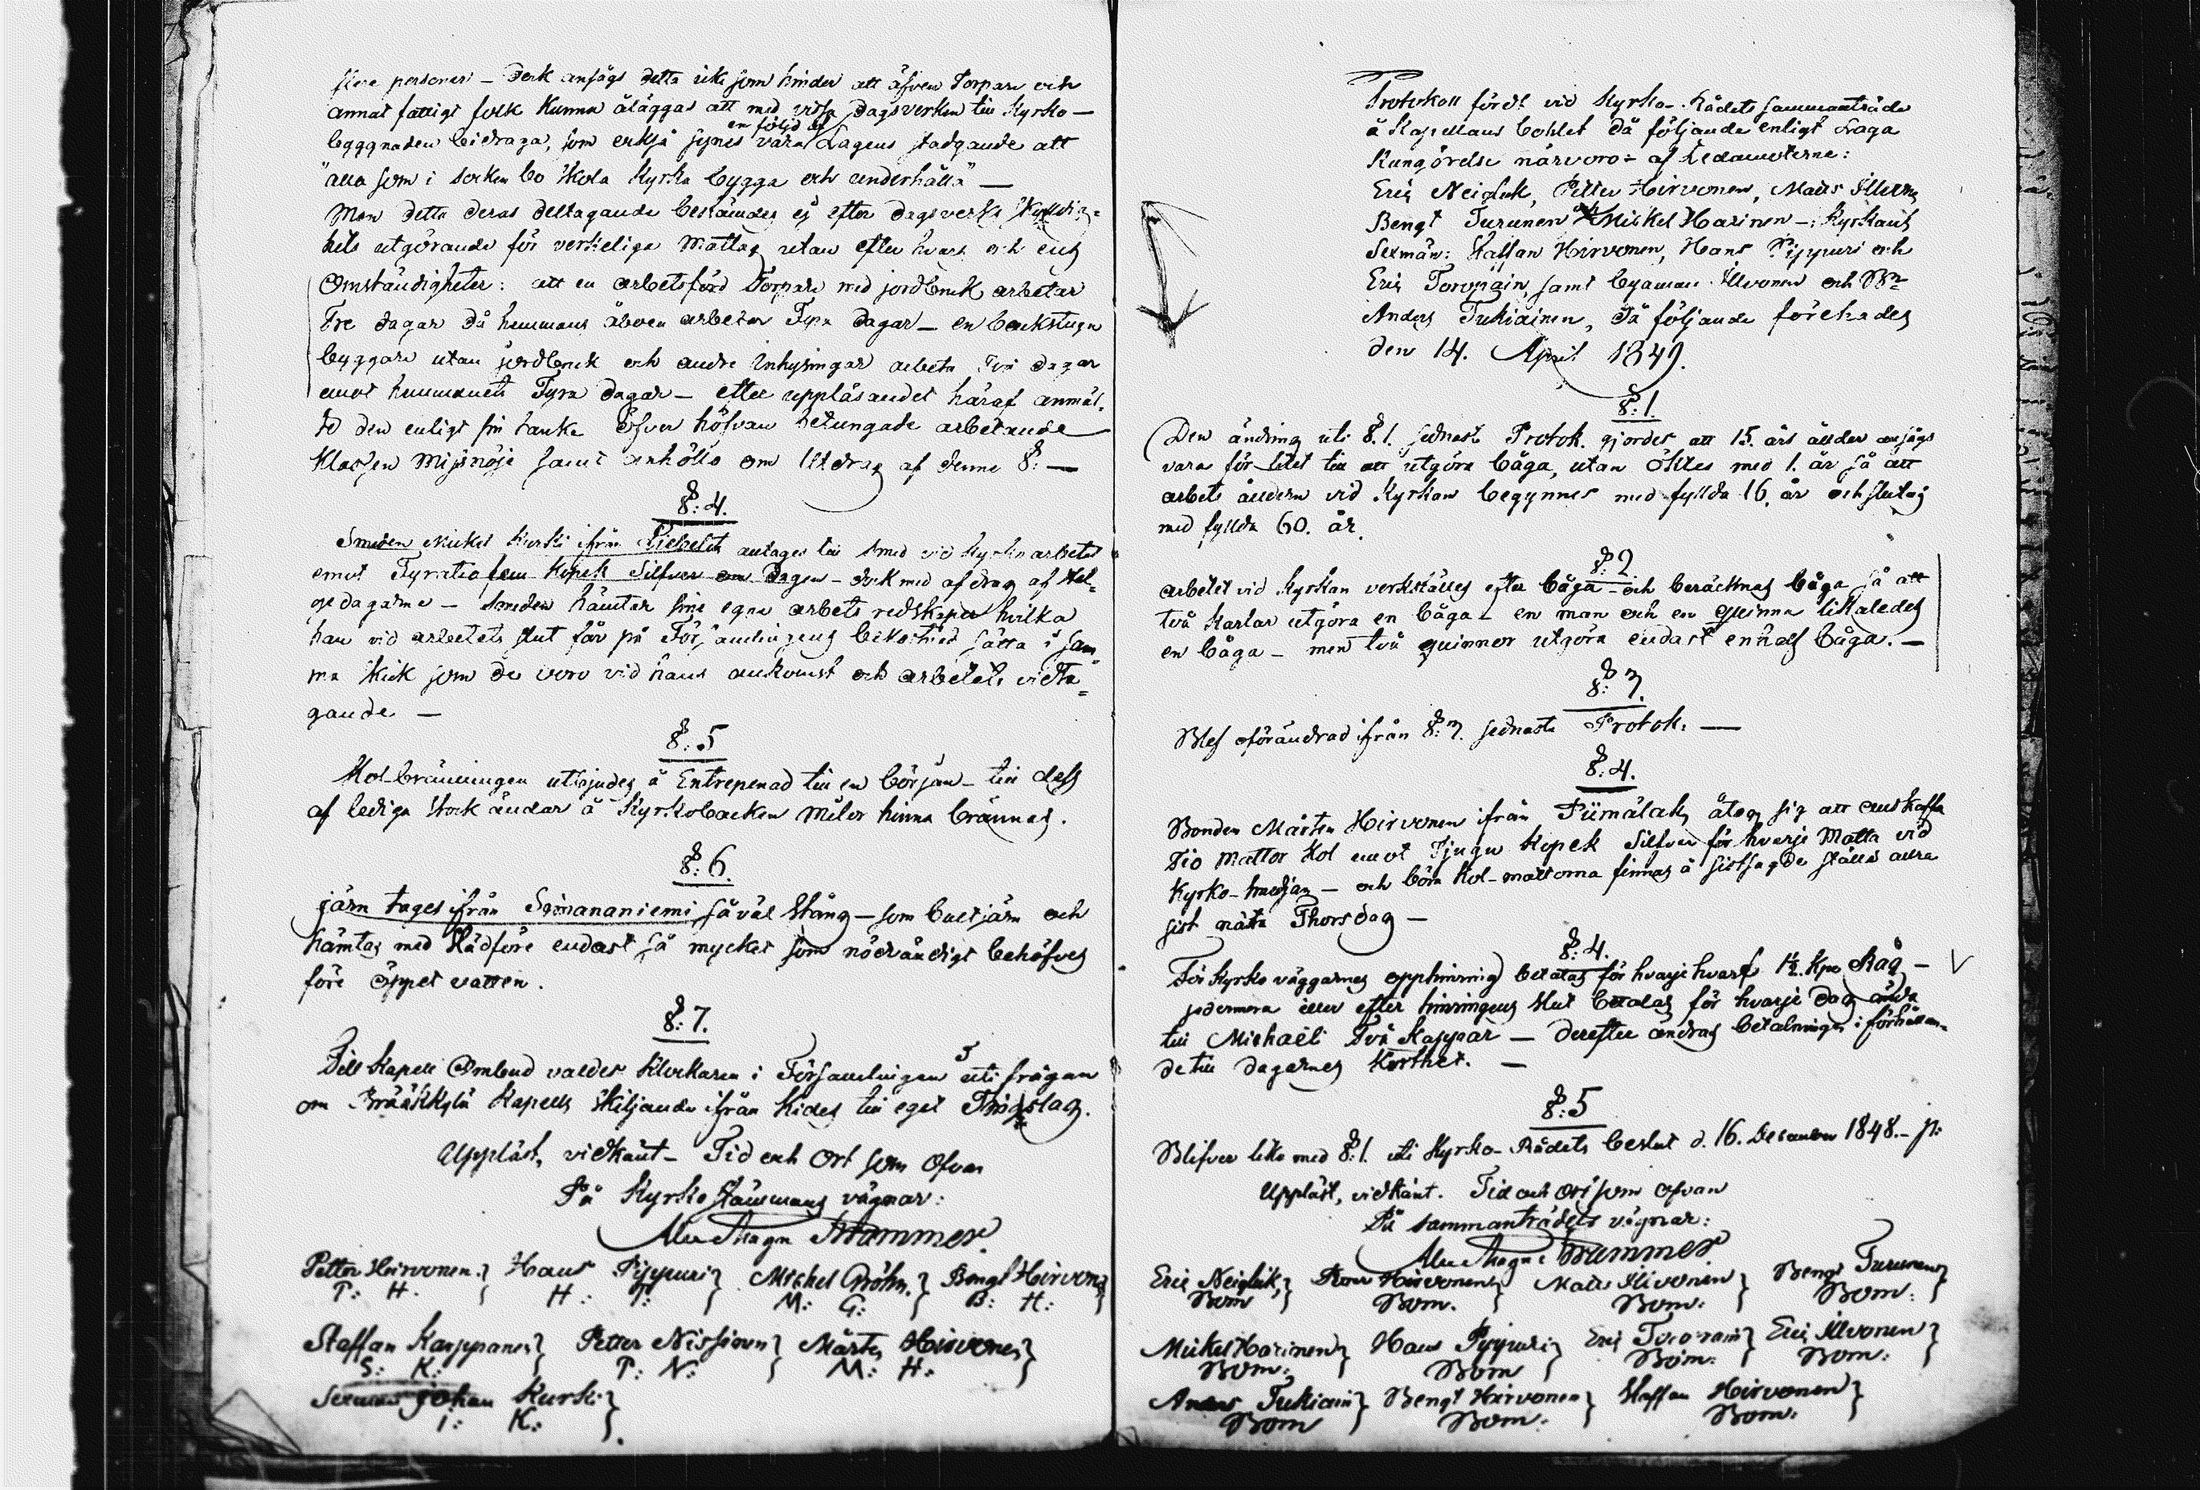 flere personer – Dock ansågs detta icke som hinder att äfven Torpare och
annat fattigt folk kunna åläggas att med vissa Dagsverken till Kyrko-
byggnaden bidraga, som också synes vara en följd af Lagens stadgande att
"alla som i socken bo skola Kyrka bygga och underhålla" –
Men detta deras deltagande bestämdes ej efter dagsverks skyldig-
hets utgörande för verkeliga Mattag utan efter hvars och ens
Omständigheter: att en arbetsförd Torpare med jordbruk arbetar
Tre dagar då hemmans åboen arbetar Fyra Dagar – en backstugu
byggare utan jordbruk och andre inhysingar arbeta två dagar
emot hemmanets Fyra Dagar – efter uppläsandet häraf anmäl-
te den enligt sin tanke öfver höfvan betungade arbetande
Klassen Missnöje samt anhöllo om Utdrag af denne §: –
§: 4.
Smeden Mickel Kurki ifrån antages till Smed vid Kyrko arbetet
emot Fyratiofem Kopek Silfver om Dagen – dock med afdrag af Hel-
gedagarne – Smeden hämtar sine egna arbets redskaper hvilka
han vid arbetets slut får på Församlingens bekostnad sätta i sam-
ma skick som de voro vid hans ankomst och arbetets vidta-
gande –
§: 5
Kol-bränningen utbjudes å Entrepenad till en början – till dess
af lediga stock ändar å Kyrkobacken Milor hinna brännas.
§: 6.
järn tages ifrån såväl Stång – som bultjärn och
hämtas med Slädföre endast så mycket som nödvändigt behöfves
före öppet vatten.
§: 7.
Till Kapell Ombud valdes Klockaren i Församlingen uti frågan
om Bräkkylä Kapells skiljande ifrån Kides till eget Tingslag.
Uppläst, vidkänt – Tid och Ort som Ofvan
På Kyrko stämmans vägnar:
Alex Magn Strammer.
Petter Hirvonen. } Hans Pippuri } Michel Gröhn. } Bengt Hirvonen }
P: H. H: P: M: G: B: H:
Staffan Karppanen } Petter Nissinen } Mårten Hirvonen }
S: K: P: N: M: H:
Sexman Johan Kurki }
I: K:
Protokoll fördt vid Kyrko-Rådets sammanträde
å Kapellans bohlet då följande enligt Laga
Kungörelse närvoro af Ledamöterne:
Eric Neiglick, Petter Hirvonen, Matts Illvonen
Bengt Turunen och Mickel Harinen – Kyrkans
Sexmän: Staffan Hirvonen, Hans Pippuri och
Eric Toropain, samt byaman Illvonen och Bn
Anders Tukiainen, Då följande förehades
den 14. April 1849.
§: 1.
Den ändring uti §. 1. sednaste Protok. gjordes att 15. års ålder ansågs
vara för litet till att utgöra båga, utan öktes med 1. år så att
arbets åldern vid Kyrkan begynnes med fyllda 16. år och slutas
med fyllda 60. år.
§: 2
arbetet vid Kyrkan verkställes efter båga – och beräcknas båga så att
två karlar utgöra en båga – en man och en qvinna likaledes
en båga – men två qvinnor utgöra endast en half båga. –
§: 3.
Blef oförändrad ifrån §: 3. sednaste Protok. –
§: 4.
Bonden Mårten Hirvonen ifrån Piimälaks åtog sig att anskaffa
Tio mattor Kol emot Tjugu Kopek Silfver för hvarje Matta vid
Kyrko-smedjan – och böra Kol-mattorna finnas å sistsagde ställe allra
sist nästa Thorsdag –
§: 4.
För Kyrko väggarnes opptimring betalas för hvarje hvarf 1½ Kpe Råg –
sedermera eller efter timringens slut betalas för hvarje Dag ända
till Michaeli Två Kappar – derefter ändras betalningen i förhållan-
de till dagarnes Korthet. –
§: 5
Blifver lika med §: 1. uti Kyrko-Rådets beslut d. 16. December 1848. –
Uppläst, vidkänt. Tid och ort som ofvan
På sammanträdets vägnar:
Alex Magn Strammer.
Eric Neiglick, } Petter Hirvonen } Matts Illvonen } Bengt Turunen }
Bom Bom. Bom: Bom:
Mickel Harinen } Hans Pippuri } Eric Toropain } Eric Illvonen }
Bom: Bom Bom: Bom:
Anders Tukiain } Bengt Hirvonen } Staffan Hirvonen }
Bom Bom: Bom: